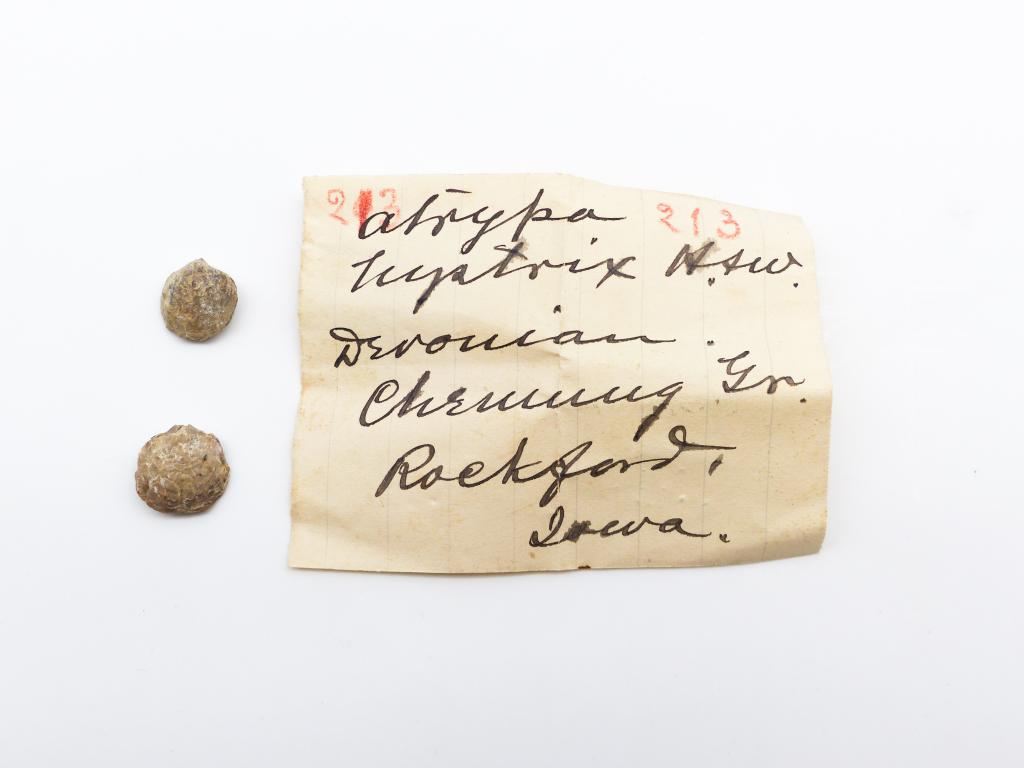 213 213
atrypa
hystrix H.&W.
Devonian.
Chemung Gr.
Rockford,
Iowa.